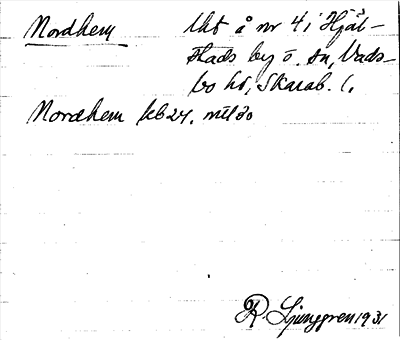 Nordhem
Uht å nr 4 i Hjäl-
stads by ö. sn, Vads-
bo hd, Skarab. l.
Nordhem kb 24.
R. Ljunggren 1931